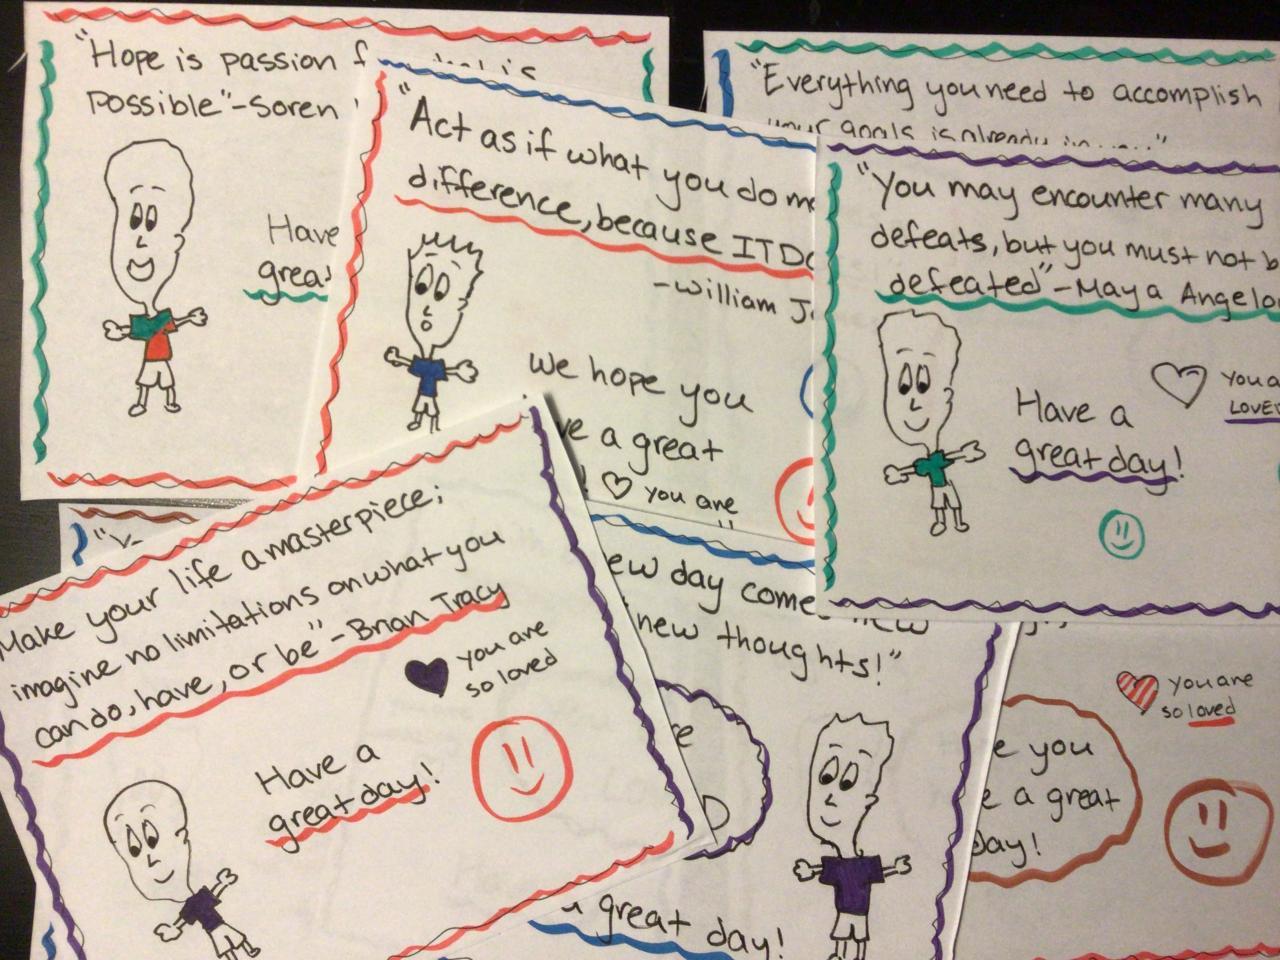 "Hope is passion f
possible"-Soren
Have
great
"Act as if what you do m
difference, because IT D
-William J.
We hope you
ve a great
you are
"Everything you need to accomplish
your goals is already in you"
"You may encounter many
defeats, but you must not b
defeated"-Maya Angelo
Have a
great day!
you a
LOVE
Make your life a masterpiece;
imagine no limitations on what you
can do, have, or be"-Brian Tracy
you are
so loved
Have a
great day!
ew day come
new thoughts!"
great day!
you are
so loved
e you
e a great
day!